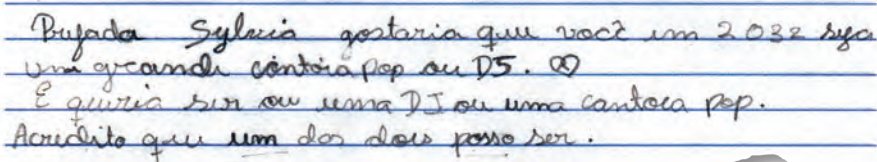 Prefada Sylvia gostaria que você em 2032 seja
uma grande cantora pop ou DJ. ♡
E queria ser ou uma DJ ou uma cantora pop.
Acredito que um dos dois posso ser.